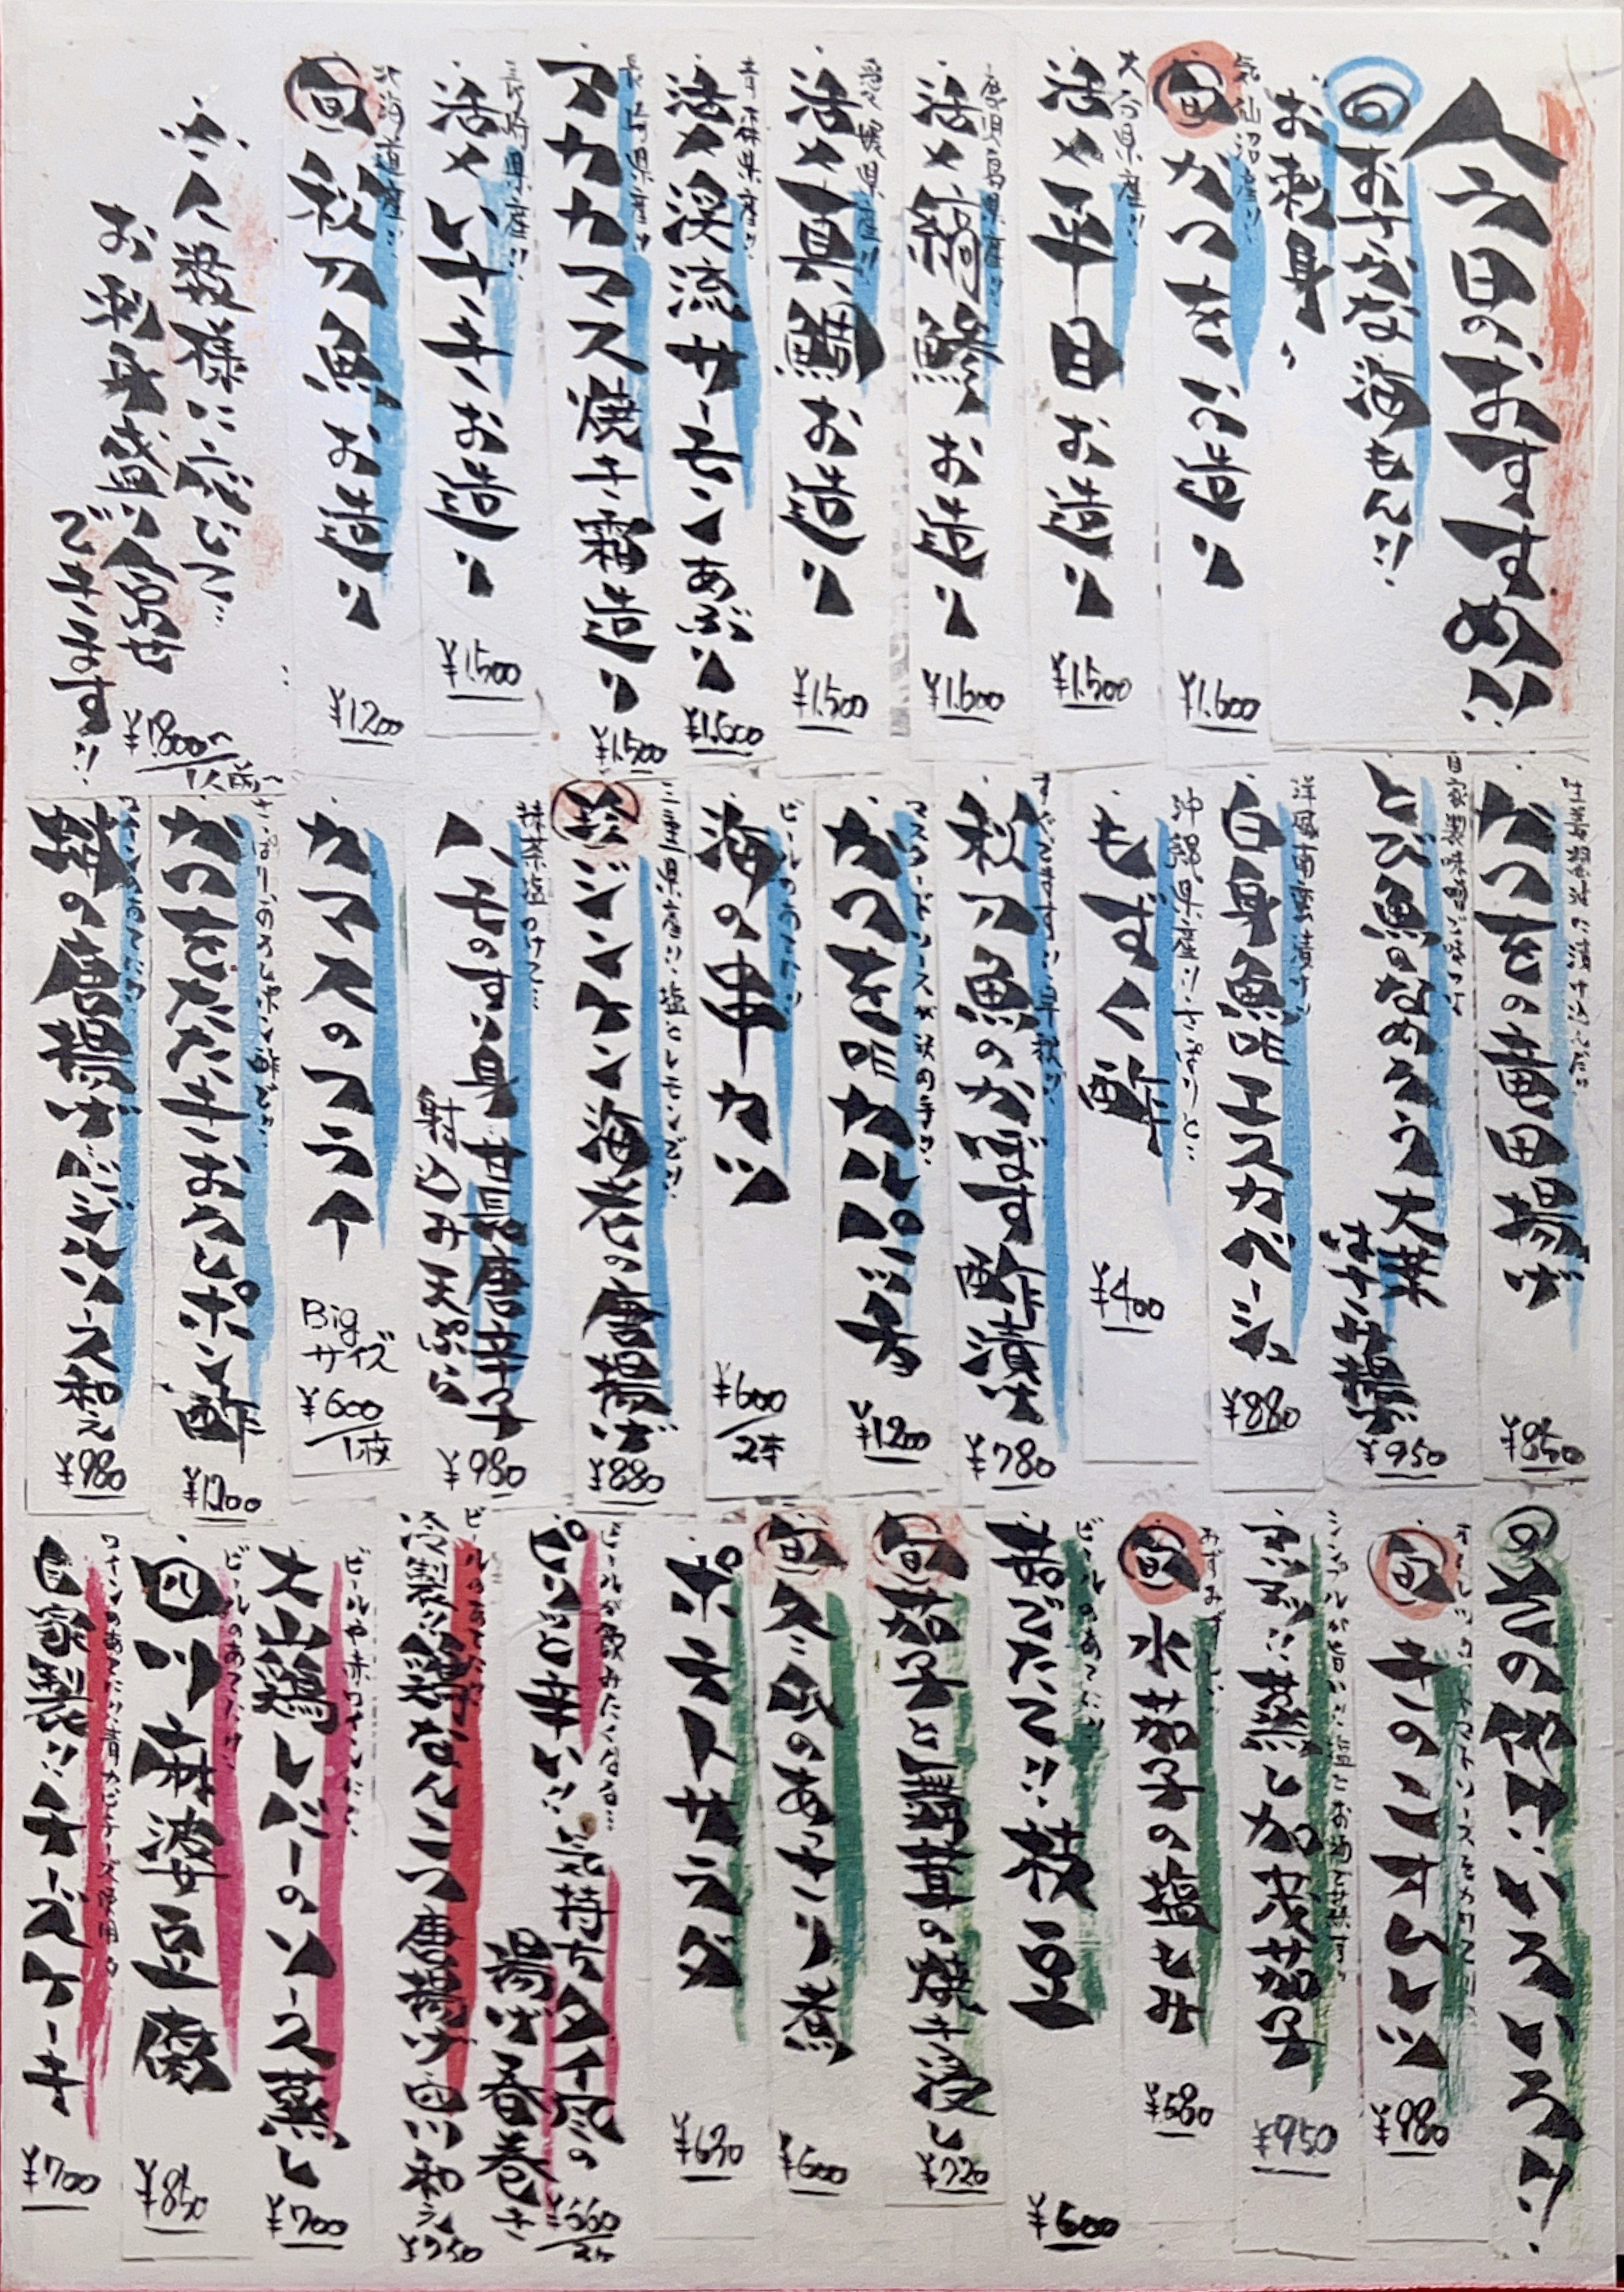 今日のおすすめ!!
お魚な海もん!!
お刺身
気仙沼産!!
旬 かつを お造り ¥1,600
大分県産!!
活〆平目お造り ¥1,500
鹿児島県産!!
活〆縞鯵お造り ¥1,600
愛媛県産!!
活〆真鯛お造り ¥1,500
青森県産!!
活〆渓流サーモンあぶり ¥1,600
長崎県産!!
アカカマス焼き霜造り ¥1,500
長崎県産!!
活〆いサキお造り ¥1,500
北海道産!!
旬 秋刀魚お造り ¥1,200
※人数様に応じて…
お刺身盛り合せ
できます!!
¥1,800〜/1人前〜
かつをの竜田揚げ ¥850
自家製味噌で味つけ
とび魚のなめろう大葉
はさみ揚げ ¥950
洋風南蛮漬け!!
白身魚エスカベーシュ ¥880
沖縄県産!!さっぱりと!!
もずく酢 ¥400
秋刀魚のかぼす酢漬け ¥780
かつを炸カルパッチョ ¥1,200
ビールのあてに!!
海の串カツ ¥600/2本
三重県産!!塩とレモンで!!
珍 ジンケン海老の唐揚げ ¥880
抹茶塩つけて…
ハモのすり身甘長唐辛子
射込み天ぷら ¥980
カマスのフライ
Bigサイズ ¥600/1枚
かつをたたきおろしポン酢 ¥1,200
鱧の唐揚げバジルソース和え ¥980
その他 いろいろ!!
旬 きのこオムレツ ¥980
ぷりぷり!!蒸し加茂茄子 ¥950
旬 水茄子の塩もみ ¥580
ビールのあてに!!
茹でたて!!枝豆 ¥600
旬 茄子と舞茸の焼き浸し ¥720
旬 冬瓜のあっさり煮 ¥600
ポテトサラダ ¥630
ビールが飲みたくなる…
ぴりっと辛い!!気持ちタイ風の
揚げ春巻き ¥560/2本
ビールのあてに!!
冷製!!鶏なんこつ唐揚げ四川和え ¥750
ビールや赤ワインに…
大山鶏レバーのソース蒸し ¥700
ビールのあてに!!
四川麻婆豆腐 ¥850
ワインのあてに!!青カビチーズ使用!!
自家製!!チーズケーキ ¥700